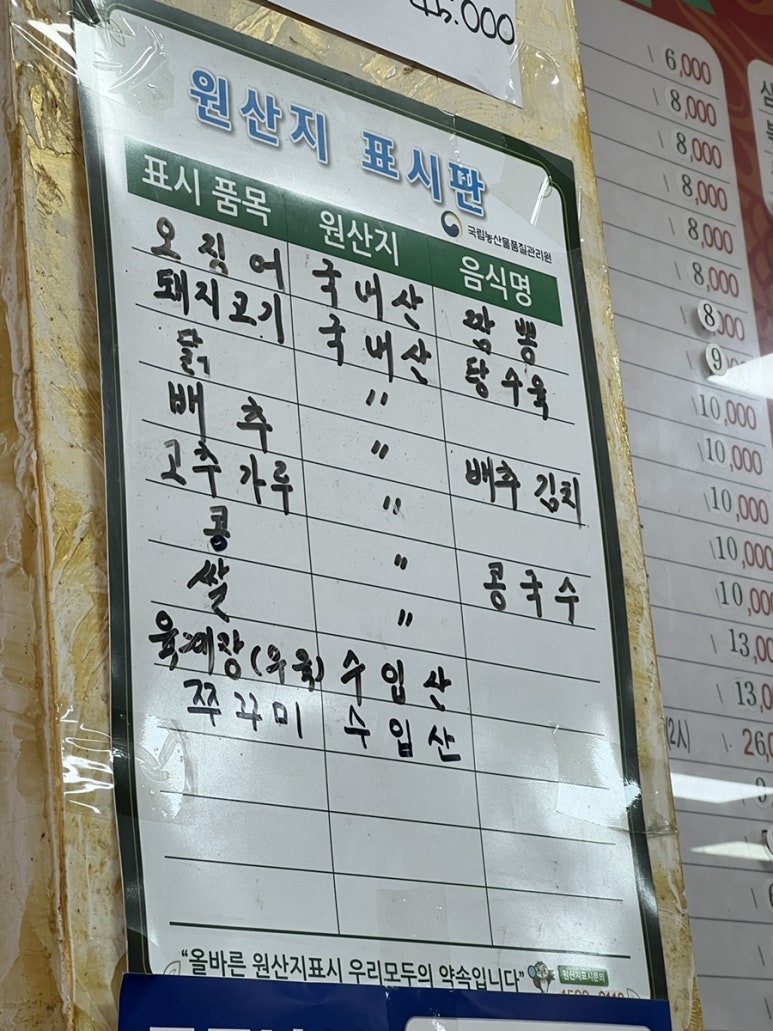 5,000
원산지 표시판
국립농산물품질관리원
표시 품목 원산지 음식명
오징어 국내산 짬뽕
돼지고기 국내산 탕수육
닭 〃
배추 〃 배추김치
고추가루 〃
콩 〃 콩국수
쌀 〃
육개장(우육) 수입산
쭈꾸미 수입산
"올바른 원산지표시 우리모두의 약속입니다"
원산지표시문의
\ 6,000
\ 8,000
\ 8,000
\ 8,000
\ 8,000
\ 8,000
8,000
9
\10,000
\10,000
\10,000
\10,000
\10,000
\ 13,00
\ 13,0
\ 26,0